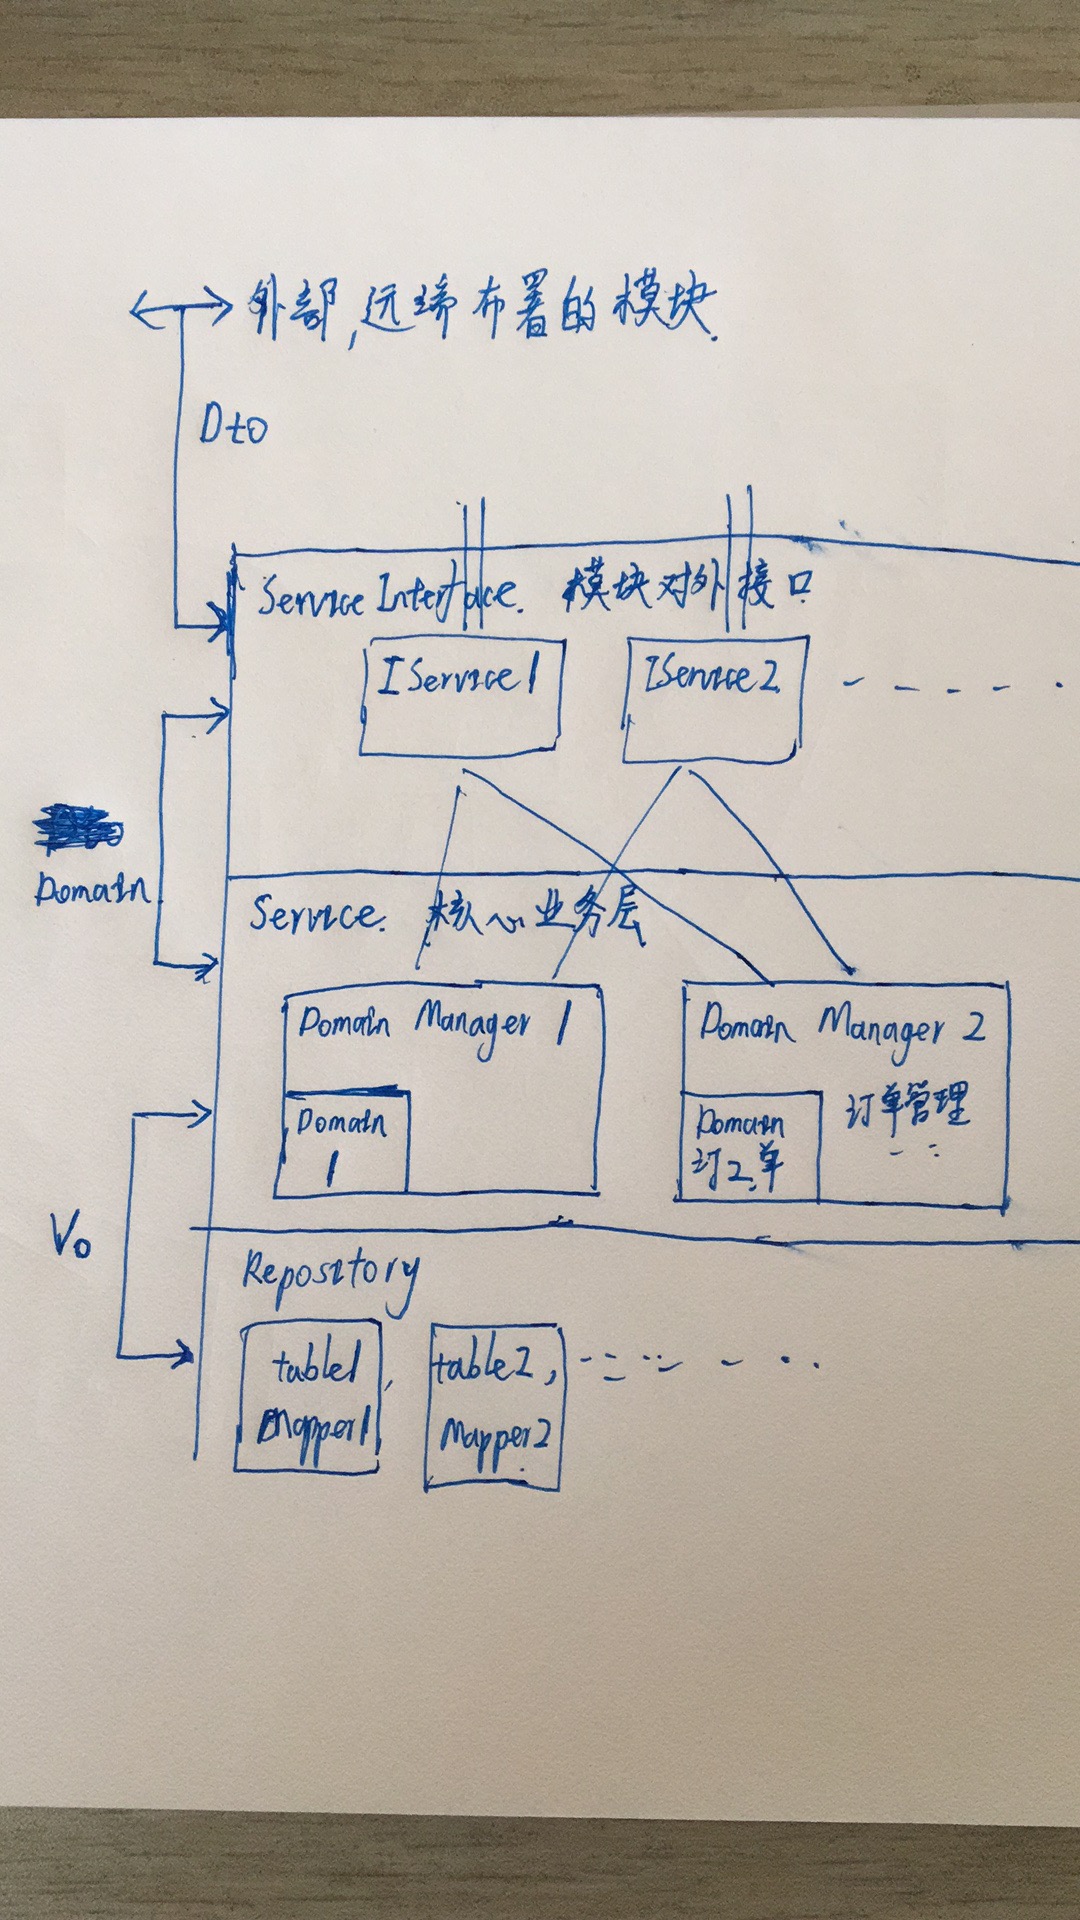 外部,远端布署的模块.
Dto
Service Interface. 模块对外接口
IService1
IService2
Domain
Service. 核心业务层
Domain Manager 1
Domain
1
Domain Manager 2
订单管理
Domain
订2.单
Vo
Repository
table1,
Mapper1
table2,
Mapper2